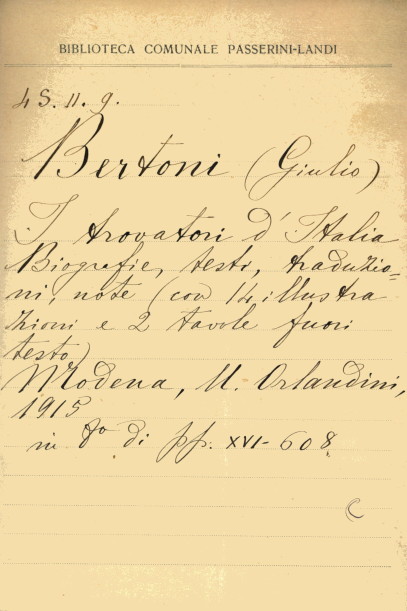 BIBLIOTECA COMUNALE PASSERINI-LANDI
4 S. 11. 9.
Bertoni (Giulio)
I trovatori d'Italia
Biografie, testi, traduzio=
ni, note (con 14 illustra
zioni e 2 tavole fuori
testo)
Modena, U. Orlandini,
1915
in 8º di pp. XVI-608.
C